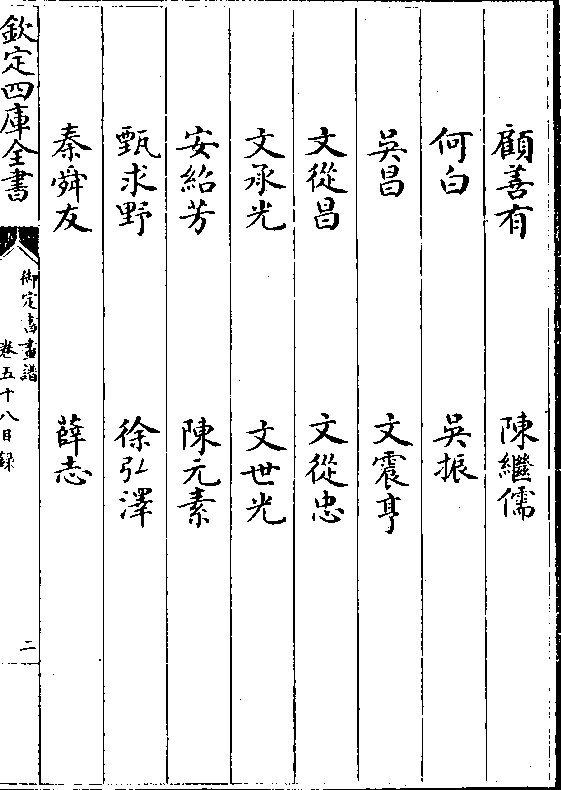 顧善有 陳繼儒
何白 吳振
吳昌 文震亨
文從昌 文從忠
文承光 文世光
安紹芳 陳元素
甄求野 徐弘澤
秦舜友 薛志
欽定四庫全書 御定書畫譜 卷五十八目録 二